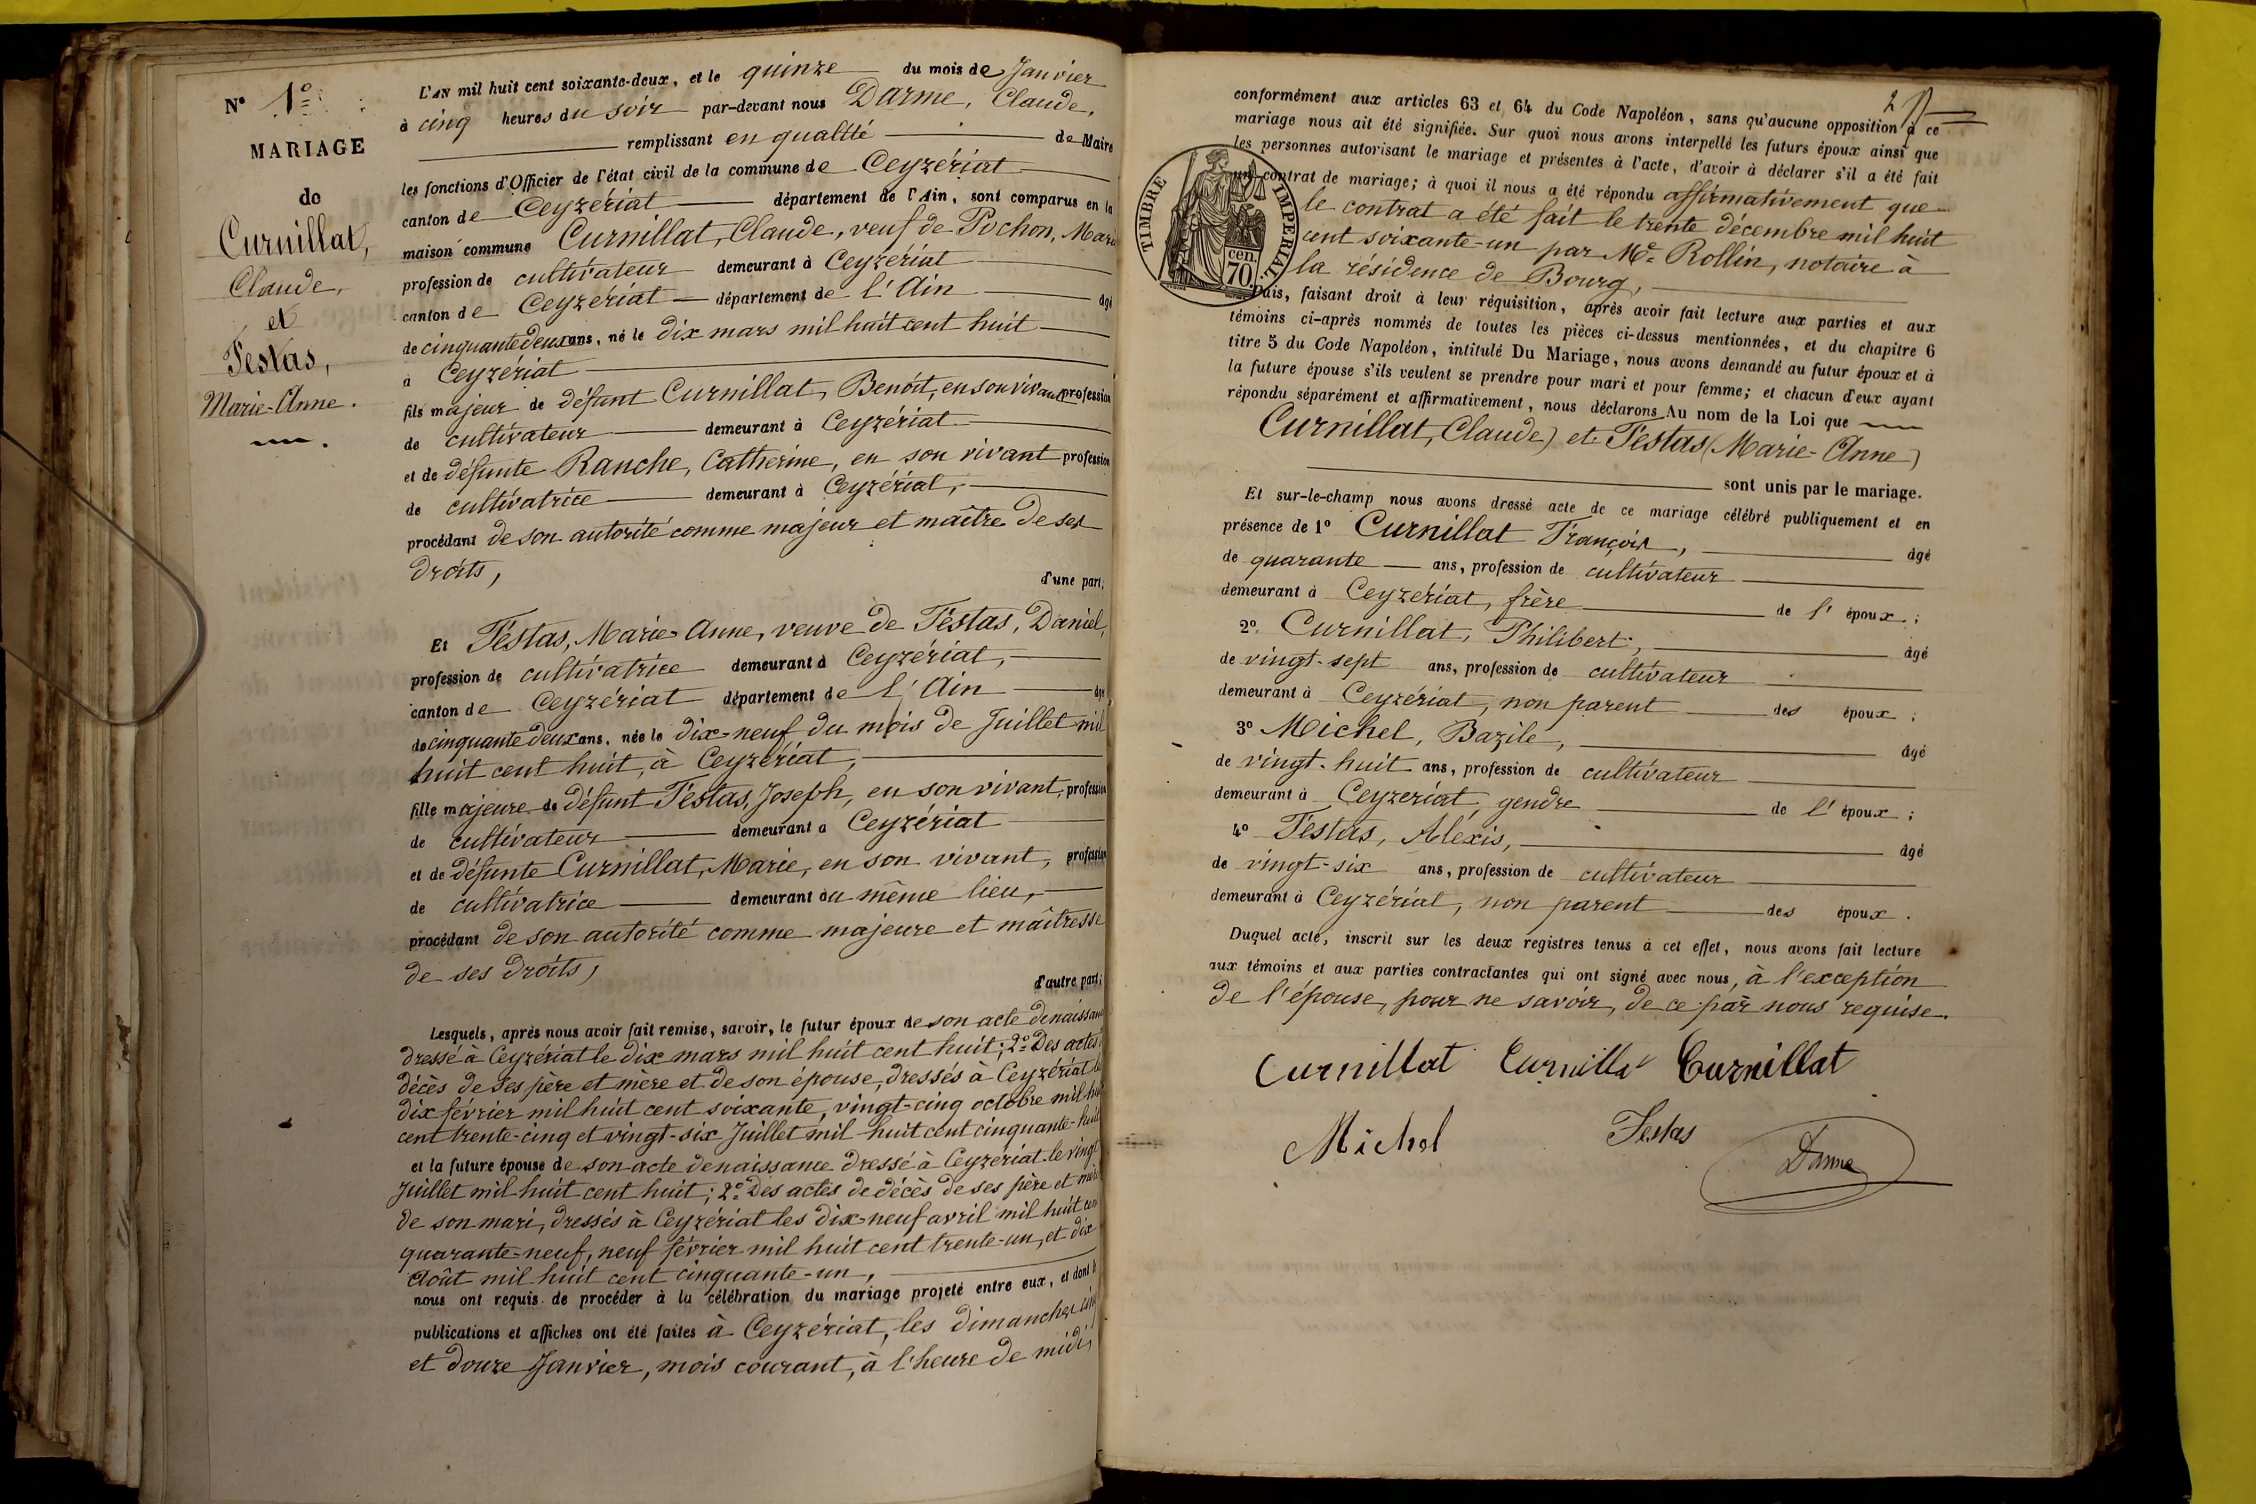 N° 1°
MARIAGE
de
Curnillat,
Claude,
et
Testas,
Marie-Anne.
L'AN mil huit cent soixante-deux, et le quinze du mois de Janvier
à cinq heures du soir par-devant nous Darme, Claude,
remplissant en qualité de Maire
les fonctions d'Officier de l'état civil de la commune de Ceyzériat
canton de Ceyzériat département de l'Ain, sont comparus en la
maison commune Curnillat, Claude, veuf de Pochon, Marie
profession de cultivateur demeurant à Ceyzériat
canton de Ceyzériat département de l'Ain âgé
de cinquante deux ans, né le dix mars mil huit cent huit
à Ceyzériat
fils majeur de défunt Curnillat, Benoît, en son vivant profession
de cultivateur demeurant à Ceyzériat
et de défunte Ranche, Catherine, en son vivant profession
de cultivatrice demeurant à Ceyzériat,
procédant de son autorité comme majeur et maître de ses
droits,
d'une part;
Et Testas, Marie-Anne, veuve de Testas, Daniel,
profession de cultivatrice demeurant à Ceyzériat,
canton de Ceyzériat département de l'Ain âgée
de cinquante deux ans, née le dix-neuf du mois de Juillet mil
huit cent huit, à Ceyzériat,
fille majeure de défunt Testas, Joseph, en son vivant, profession
de cultivateur demeurant à Ceyzériat
et de défunte Curnillat, Marie, en son vivant, profession
de cultivatrice demeurant au même lieu,
procédant de son autorité comme majeure et maîtresse
de ses droits,
d'autre part;
Lesquels, après nous avoir fait remise, savoir, le futur époux de son acte de naissance
dressé à Ceyzériat le dix mars mil huit cent huit; 2° Des actes
décès de ses père et mère et de son épouse, dressés à Ceyzériat le
dix février mil huit cent soixante, vingt-cinq octobre mil huit
cent trente-cinq et vingt-six Juillet mil huit cent cinquante-huit
et la future épouse de son acte de naissance dressé à Ceyzériat le vingt
Juillet mil huit cent huit; 2° Des actes de décès de ses père et mère
de son mari, dressés à Ceyzériat les dix-neuf avril mil huit cent
quarante-neuf, neuf février mil huit cent trente-un, et dix
Août mil huit cent cinquante-un,
nous ont requis de procéder à la célébration du mariage projeté entre eux, et dont les
publications et affiches ont été faites à Ceyzériat, les dimanches cinq
et douze Janvier, mois courant, à l'heure de midi,
2
conformément aux articles 63 et 64 du Code Napoléon, sans qu'aucune opposition à ce
mariage nous ait été signifiée. Sur quoi nous avons interpellé les futurs époux ainsi que
les personnes autorisant le mariage et présentes à l'acte, d'avoir à déclarer s'il a été fait
un contrat de mariage; à quoi il nous a été répondu affirmativement que
le contrat a été fait le trente décembre mil huit
cent soixante-un par Me Rollin, notaire à
la résidence de Bourg,
TIMBRE IMPÉRIAL.
cen.
70
Puis, faisant droit à leur réquisition, après avoir fait lecture aux parties et aux
témoins ci-après nommés de toutes les pièces ci-dessus mentionnées, et du chapitre 6
titre 5 du Code Napoléon, intitulé Du Mariage, nous avons demandé au futur époux et à
la future épouse s'ils veulent se prendre pour mari et pour femme; et chacun d'eux ayant
répondu séparément et affirmativement, nous déclarons Au nom de la Loi que
Curnillat, (Claude) et Testas (Marie-Anne)
sont unis par le mariage.
Et sur-le-champ nous avons dressé acte de ce mariage célébré publiquement et en
présence de 1° Curnillat François, âgé
de quarante ans, profession de cultivateur
demeurant à Ceyzériat, frère de l'époux;
2° Curnillat, Philibert, âgé
de vingt-sept ans, profession de cultivateur
demeurant à Ceyzériat, non parent des époux;
3° Michel, Bazile, âgé
de vingt-huit ans, profession de cultivateur
demeurant à Ceyzeriat, gendre de l'époux;
4° Testas, Aléxis, âgé
de vingt-six ans, profession de cultivateur
demeurant à Ceyzériat, non parent des époux.
Duquel acte, inscrit sur les deux registres tenus à cet effet, nous avons fait lecture
aux témoins et aux parties contractantes qui ont signé avec nous, à l'exception
de l'épouse, pour ne savoir, de ce par nous requise.
Curnillat Curnilla Curnillat
Michel Testas
Darme